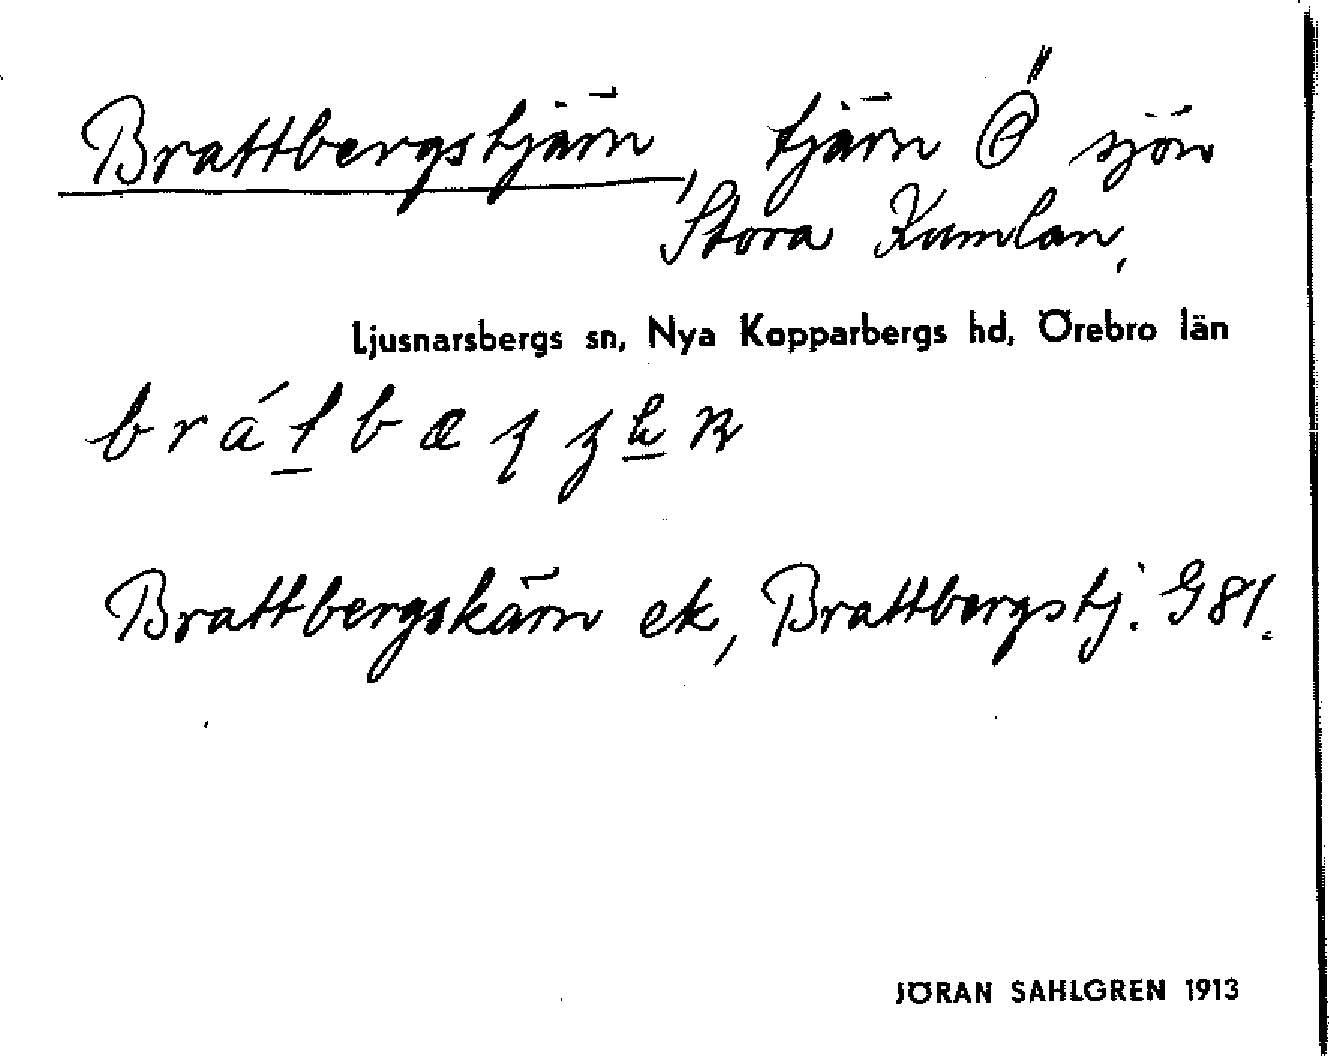 Brattbergstjärn, tjärn Ö sjön
Stora Kumlan,
Ljusnarsbergs sn, Nya Kopparbergs hd, Örebro län
Brattbergskärn ek, Brattbergstj. G81.
JÖRAN SAHLGREN 1913